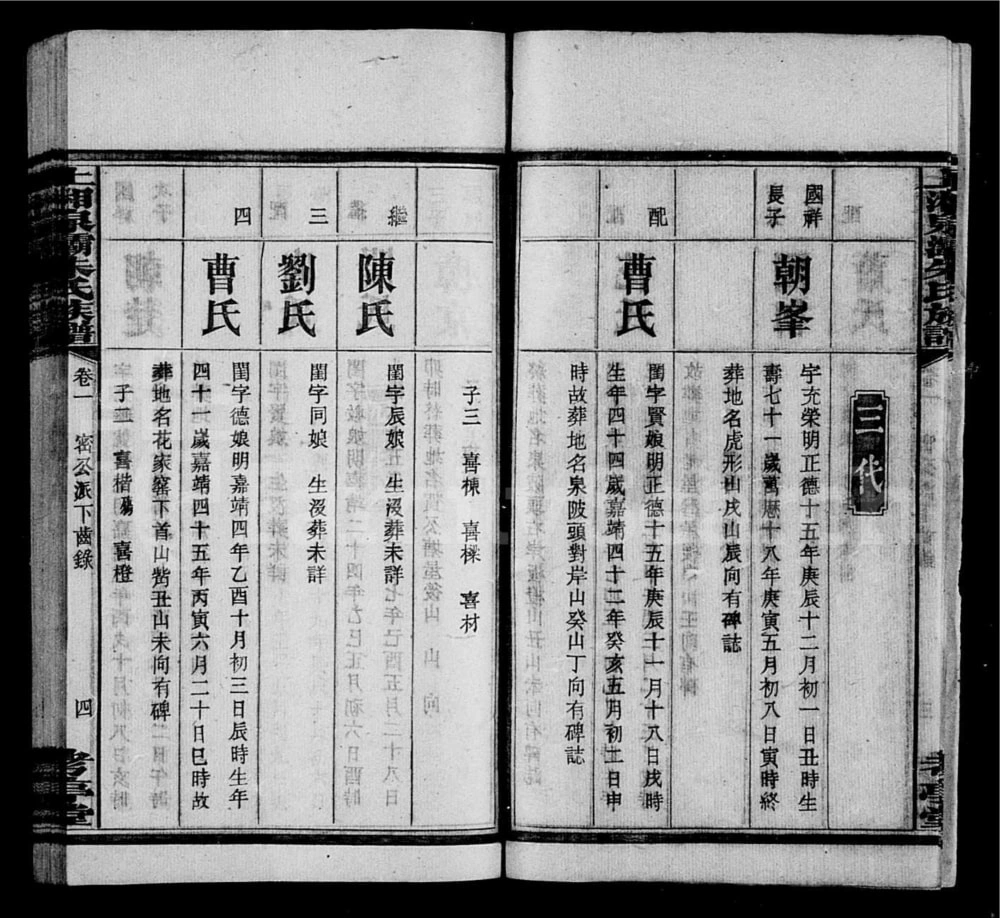 三代
國祥
長子
朝峯
字充榮明正德十五年庚辰十二月初一日丑時生
壽七十一歲萬曆十八年庚寅五月初八日寅時終
葬地名虎形山戌山辰向有碑誌
配
曹氏
閨字賢娘明正德十五年庚辰十一月十八日戌時
生年四十四歲嘉靖四十二年癸亥五月初二日申
時故葬地名泉陂頭對岸山癸山丁向有碑誌
子三 喜棟 喜樑 喜材
繼
陳氏
閨字辰娘 生沒葬未詳
三
劉氏
閨字同娘 生沒葬未詳
四
曹氏
閨字德娘明嘉靖四年乙酉十月初三日辰時生年
四十一歲嘉靖四十五年丙寅六月二十日巳時故
葬地名花家窰下首山背丑山未向有碑
子二 喜楷殤 喜橙
上湘泉灞朱氏族譜
卷一
密公派下齒錄
四
考亭堂